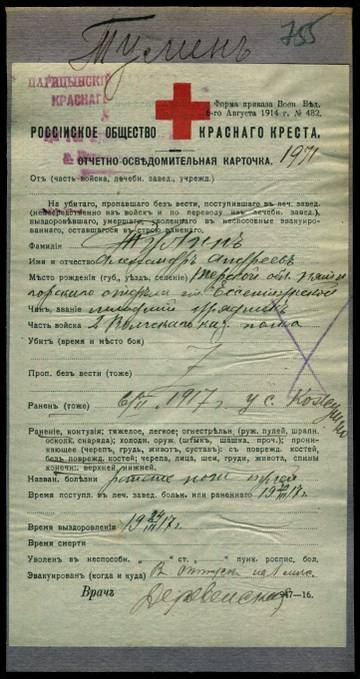 Тулинъ
755
ЦАРИЦЫНСКІЙ
КРАСНАГО
Форма приказа Воен. Вѣд.
6-го Августа 1914 г. № 482.
РОССІЙСКОЕ ОБЩЕСТВО КРАСНАГО КРЕСТА.
ОТЧЕТНО-ОСВѢДОМИТЕЛЬНАЯ КАРТОЧКА. 1971
Отъ (часть войска, лечебн. завед., учрежд.)
На убитаго, пропавшаго безъ вести, поступившаго въ леч. завед.
(непосредственно изъ войскъ и по переводу изъ лечебн. завед.),
выздоровѣвшаго, умершаго, уволеннаго въ неспособные эвакуиро-
ваннаго, оставшагося въ строю раненаго.
Фамилія Тулинъ
Имя и отчество Андреевъ
Мѣсто рожденія (губ., уѣзд., селеніе) Терской обл. Пяти-
горскаго отдѣла ст. Ессентукской
Чинъ, званіе
Часть войска 2 каз. полка
Убитъ (время и мѣсто боя)
Проп. безъ вести (тоже)
Раненъ (тоже) 6/II 1917 г. у с.
Раненіе, контузія: тяжелое, легкое; огнестрѣльн. (руж. пулей, шрапн.
осколк. снаряда); холодн. оруж. (штык., шашка, проч.); прони-
кающее (черепъ, грудь, животъ, суставъ): съ поврежд. костей,
безъ поврежд. костей; черепа, лица, шеи, груди, живота, спины
конечн. верхней, нижней.
Назван. болѣзни пулей
Время поступл. въ леч. завед. больн. или раненнаго 17 г.
Время выздоровленія 17 г.
Время смерти
Уволенъ въ неспособн. „ “ ст. „ “ пунк. роспис. бол.
Эвакуированъ (когда и куда) въ отпускъ на 1 мѣс.
Врачъ 47—16.